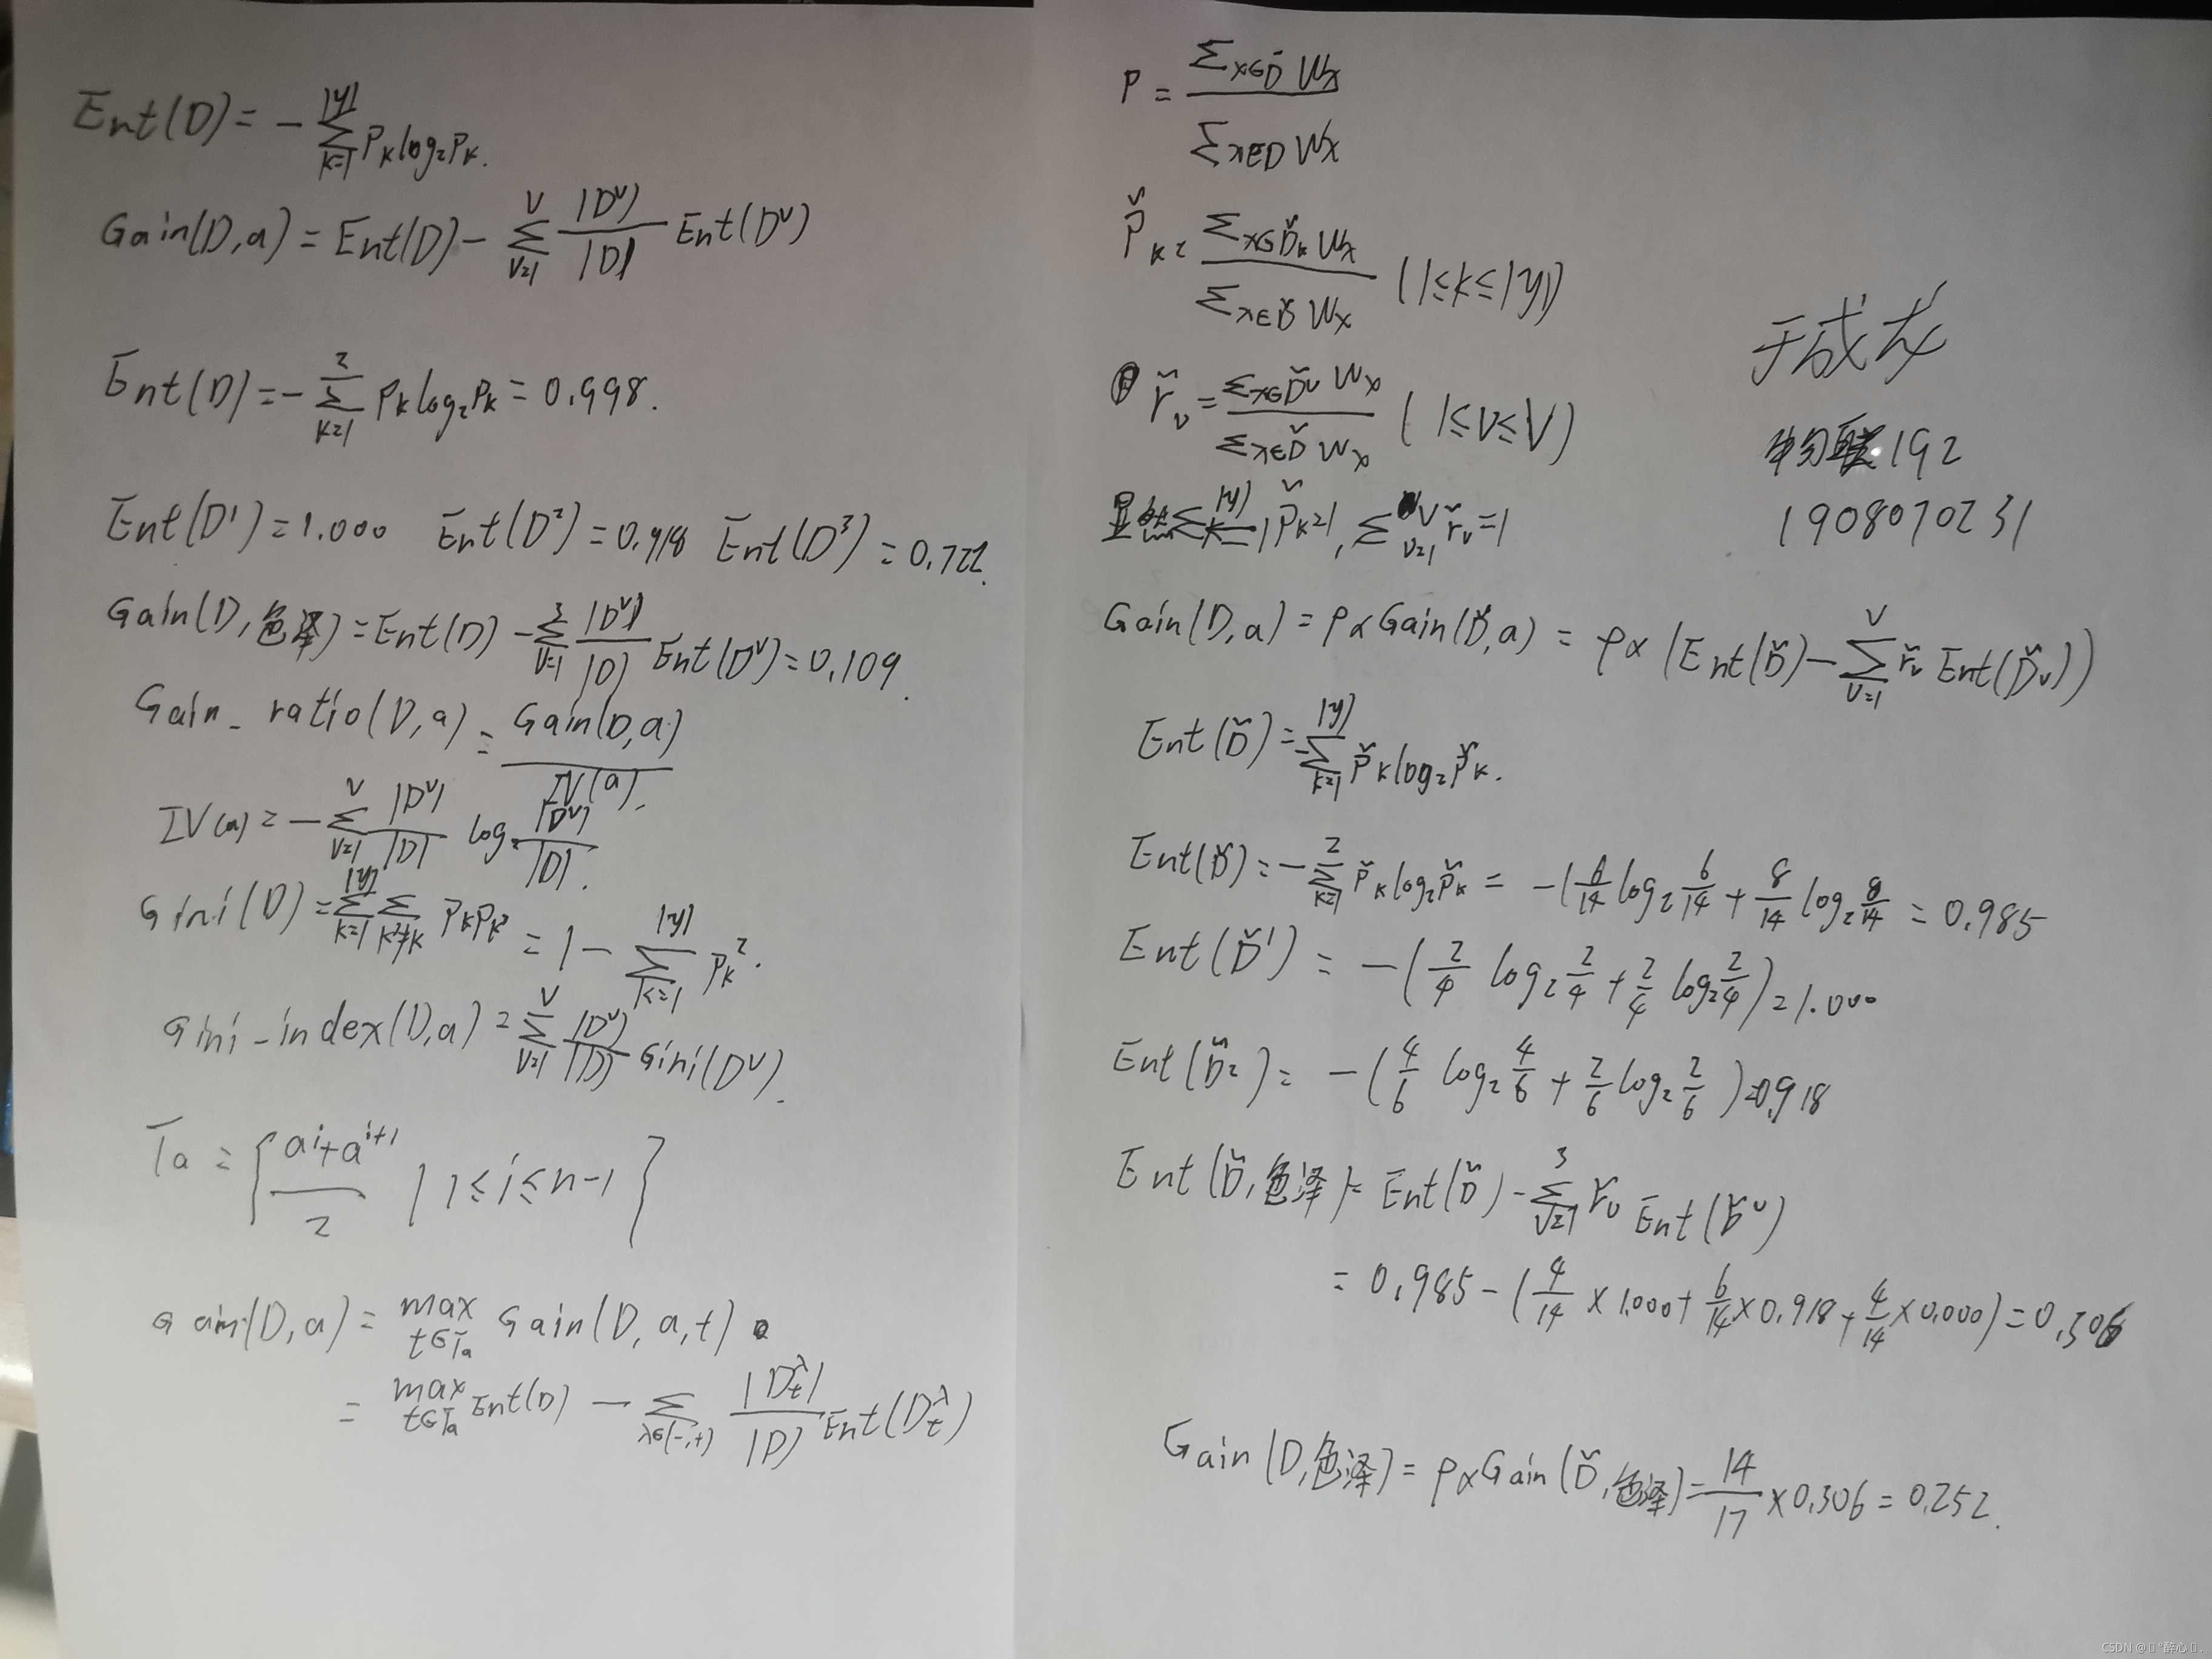 Ent(D) = - ∑_{k=1}^{|y|} P_k log₂ P_k.
Gain(D,a) = Ent(D) - ∑_{v=1}^{V} |D^v|/|D| Ent(D^v)
Ent(D) = - ∑_{k=1}^{2} P_k log₂ P_k = 0.998.
Ent(D¹) = 1.000 Ent(D²) = 0.918 Ent(D³) = 0.722.
Gain(D,色泽) = Ent(D) - ∑_{v=1}^{3} |D^v|/|D| Ent(D^v) = 0.109.
Gain_ratio(D,a) = Gain(D,a)/IV(a).
IV(a) = - ∑_{v=1}^{V} |D^v|/|D| log₂ |D^v|/|D|.
Gini(D) = ∑_{k=1}^{|y|} ∑_{k'≠k} P_k P_k' = 1 - ∑_{k=1}^{|y|} P_k².
Gini_index(D,a) = ∑_{v=1}^{V} |D^v|/|D| Gini(D^v).
Ta = { (a^i + a^{i+1})/2 | 1≤i≤n-1 }
Gain(D,a) = max_{t∈Ta} Gain(D,a,t)
= max_{t∈Ta} Ent(D) - ∑_{λ∈{-,+}} |D_t^λ|/|D| Ent(D_t^λ)
ρ = ∑_{x∈D̃} W_x / ∑_{x∈D} W_x
P̃_k = ∑_{x∈D̃_k} W_x / ∑_{x∈D̃} W_x (1≤k≤|y|)
r̃_v = ∑_{x∈D̃^v} W_x / ∑_{x∈D̃} W_x (1≤v≤V)
显然∑_{k=1}^{|y|} P̃_k = 1, ∑_{v=1}^{V} r̃_v = 1
Gain(D,a) = ρ×Gain(D̃,a) = ρ×(Ent(D̃) - ∑_{v=1}^{V} r̃_v Ent(D̃_v))
Ent(D̃) = -∑_{k=1}^{|y|} P̃_k log₂ P̃_k.
Ent(D̃) = - ∑_{k=1}^{2} P̃_k log₂ P̃_k = -(6/14 log₂ 6/14 + 8/14 log₂ 8/14 = 0.985
Ent(D̃¹) = -(2/4 log₂ 2/4 + 2/4 log₂ 2/4) = 1.000
Ent(D̃²) = -(4/6 log₂ 4/6 + 2/6 log₂ 2/6) = 0.918
Ent(D̃,色泽) = Ent(D̃) - ∑_{v=1}^{3} r̃_v Ent(D̃^v)
= 0.985 - (4/14 × 1.000 + 6/14 × 0.918 + 4/14 × 0.000) = 0.306
Gain(D,色泽) = ρ×Gain(D̃,色泽) = 14/17 × 0.306 = 0.252.
于成龙
物联192
1908070231
CSDN @ °醉心